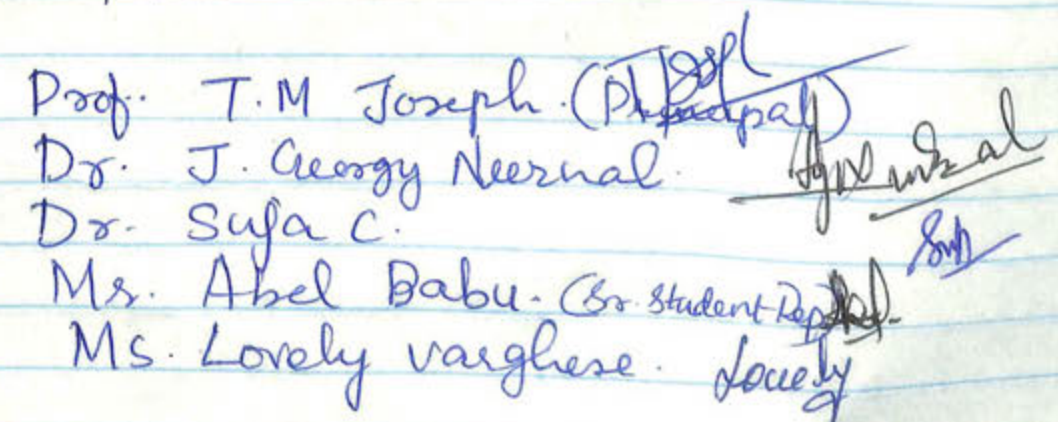 Prof. T.M Joseph. (Principal)
Dr. J. Georgy Neernal.
Dr. Suja C.
Mr. Abel Babu. (Sr. Student Rep)
Ms. Lovely varghese. Lovely